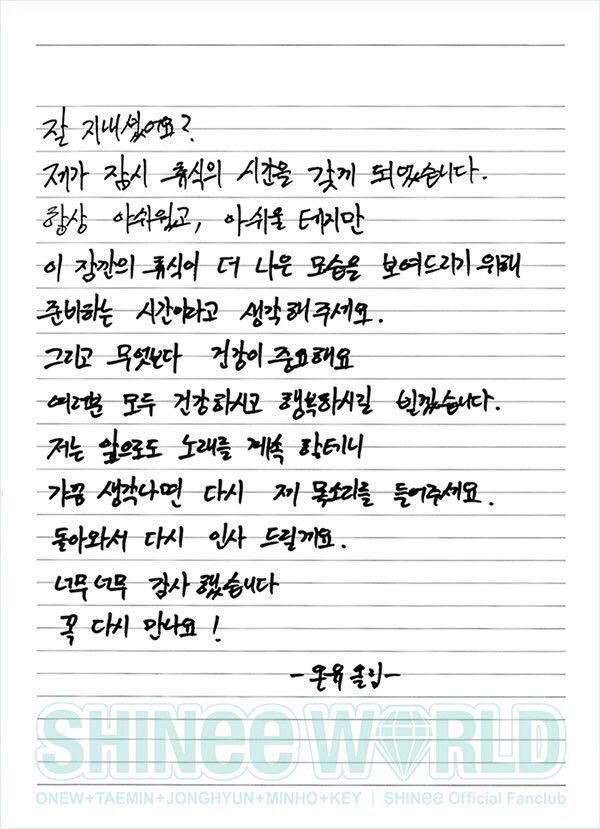 잘 지내셨어요?
제가 잠시 휴식의 시간을 갖게 되었습니다.
항상 아쉬웠고, 아쉬울 테지만
이 잠깐의 휴식이 더 나은 모습을 보여드리기 위해
준비하는 시간이라고 생각해주세요.
그리고 무엇보다 건강이 중요해요
여러분 모두 건강하시고 행복하시길 빌겠습니다.
저는 앞으로도 노래를 계속 할테니
가끔 생각나면 다시 제 목소리를 들어주세요.
돌아와서 다시 인사 드릴께요.
너무너무 감사했습니다
꼭 다시 만나요!
-온유 올림-
SHINee WORLD
ONEW+TAEMIN+JONGHYUN+MINHO+KEY | SHINee Official Fanclub